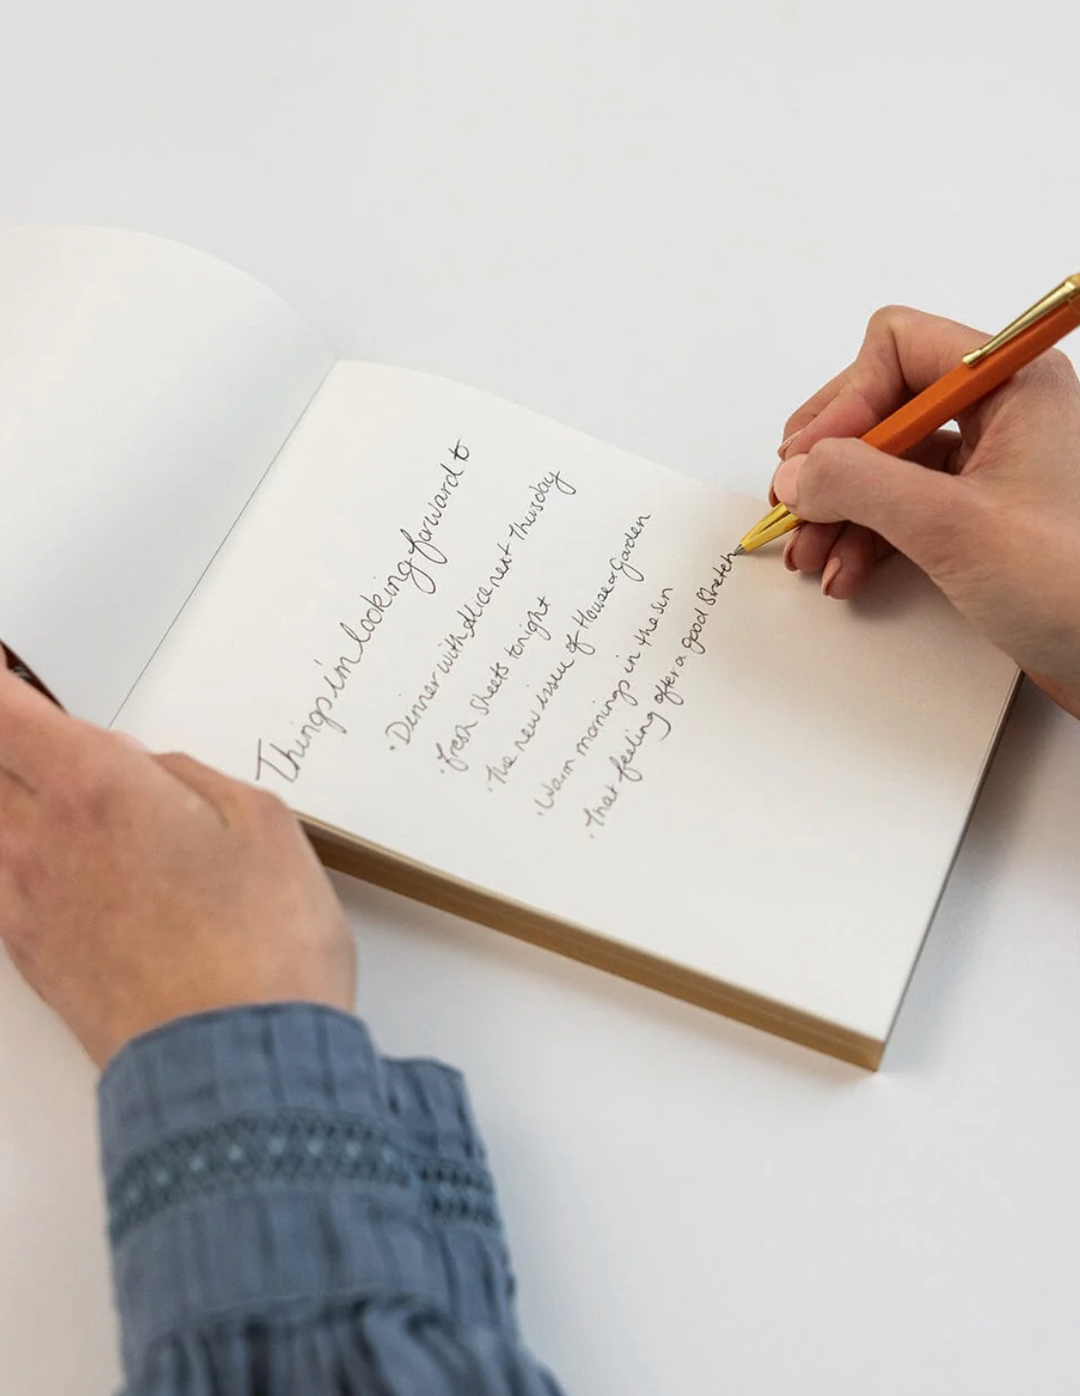 Things i'm looking forward to
· Dinner with Alice next Thursday
· fresh sheets tonight
· The new issue of House & Garden
· Warm mornings in the sun
· That feeling after a good stretch